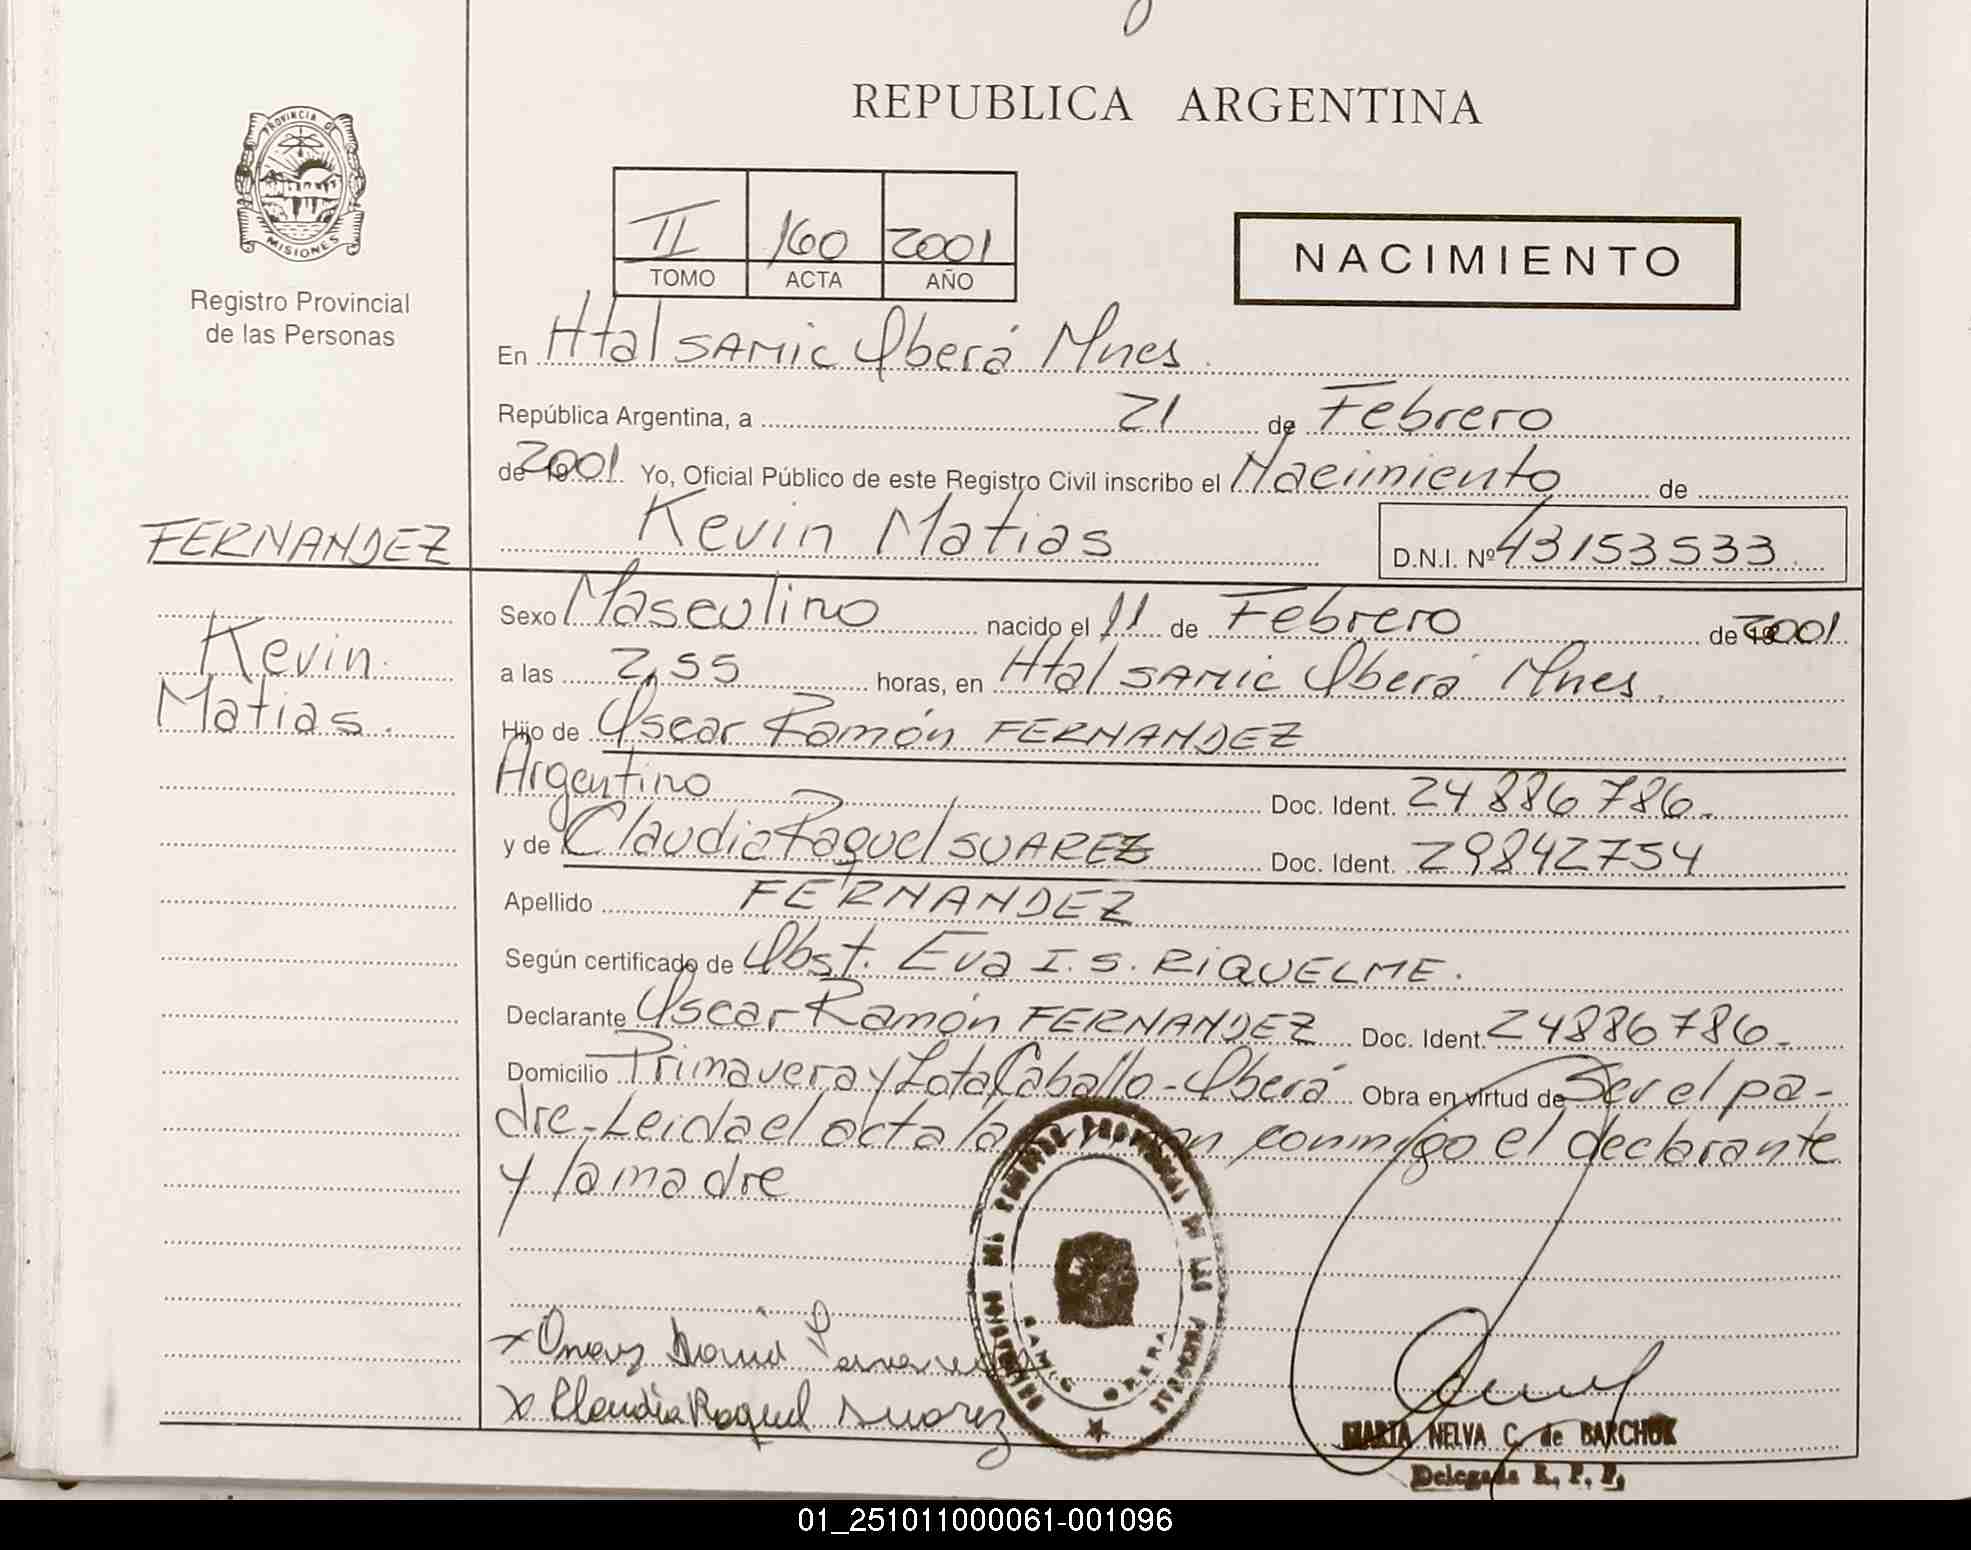 REPUBLICA ARGENTINA
PROVINCIA D
MISIONES
Registro Provincial
de las Personas
II 160 2001
TOMO ACTA AÑO
NACIMIENTO
En Htal SAMIC Oberá Mnes.
República Argentina, a 21 de Febrero
de 2001 Yo, Oficial Público de este Registro Civil inscribo el Nacimiento de
Kevin Matias D.N.I. Nº 43153533
FERNANDEZ
Kevin
Matias.
Sexo Masculino nacido el 11 de Febrero de 2001
a las 2,55 horas, en Htal SAMIC Oberá Mnes.
Hijo de Oscar Ramón FERNANDEZ
Argentino Doc. Ident. 24886786.
y de Claudia Raquel SUAREZ Doc. Ident. 29842754
Apellido FERNANDEZ
Según certificado de Obst. Eva I. S. RIQUELME.
Declarante Oscar Ramón FERNANDEZ Doc. Ident. 24886786.
Domicilio Primavera y Lota Caballo - Oberá Obra en virtud de Ser el pa-
dre - Leida el acta la conmigo el declarante
y la madre
x Claudia Raquel Suarez
SAMIC OBERA
MARTA NELVA C. de BARCHUK
Delegada R. P. P.
01_251011000061-001096